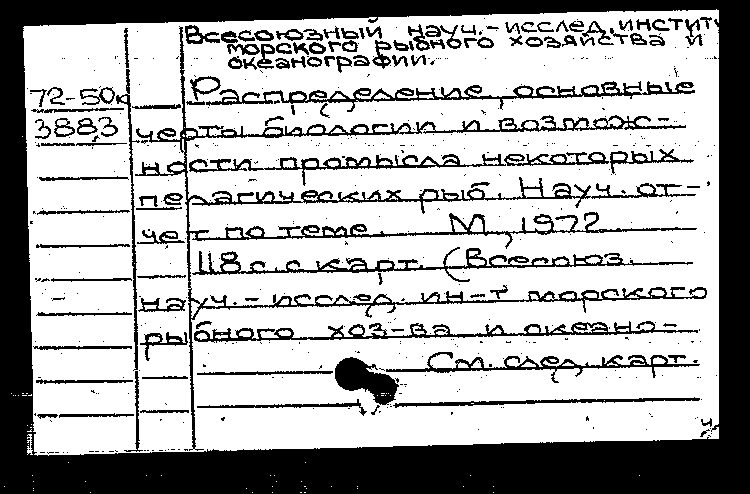 Всесоюзный науч.-исслед. институ
морского рыбного хозяйства и
океанографии.
72-50к
3883
Распределение, основные
черты биологии и возмож-
ности промысла некоторых
пелагических рыб. Науч. от-
чет по теме. М, 1972
118 с. с карт. (Всесоюз.
науч.-исслед. ин-т морского
рыбного хоз-ва и океано-
См. след. карт.